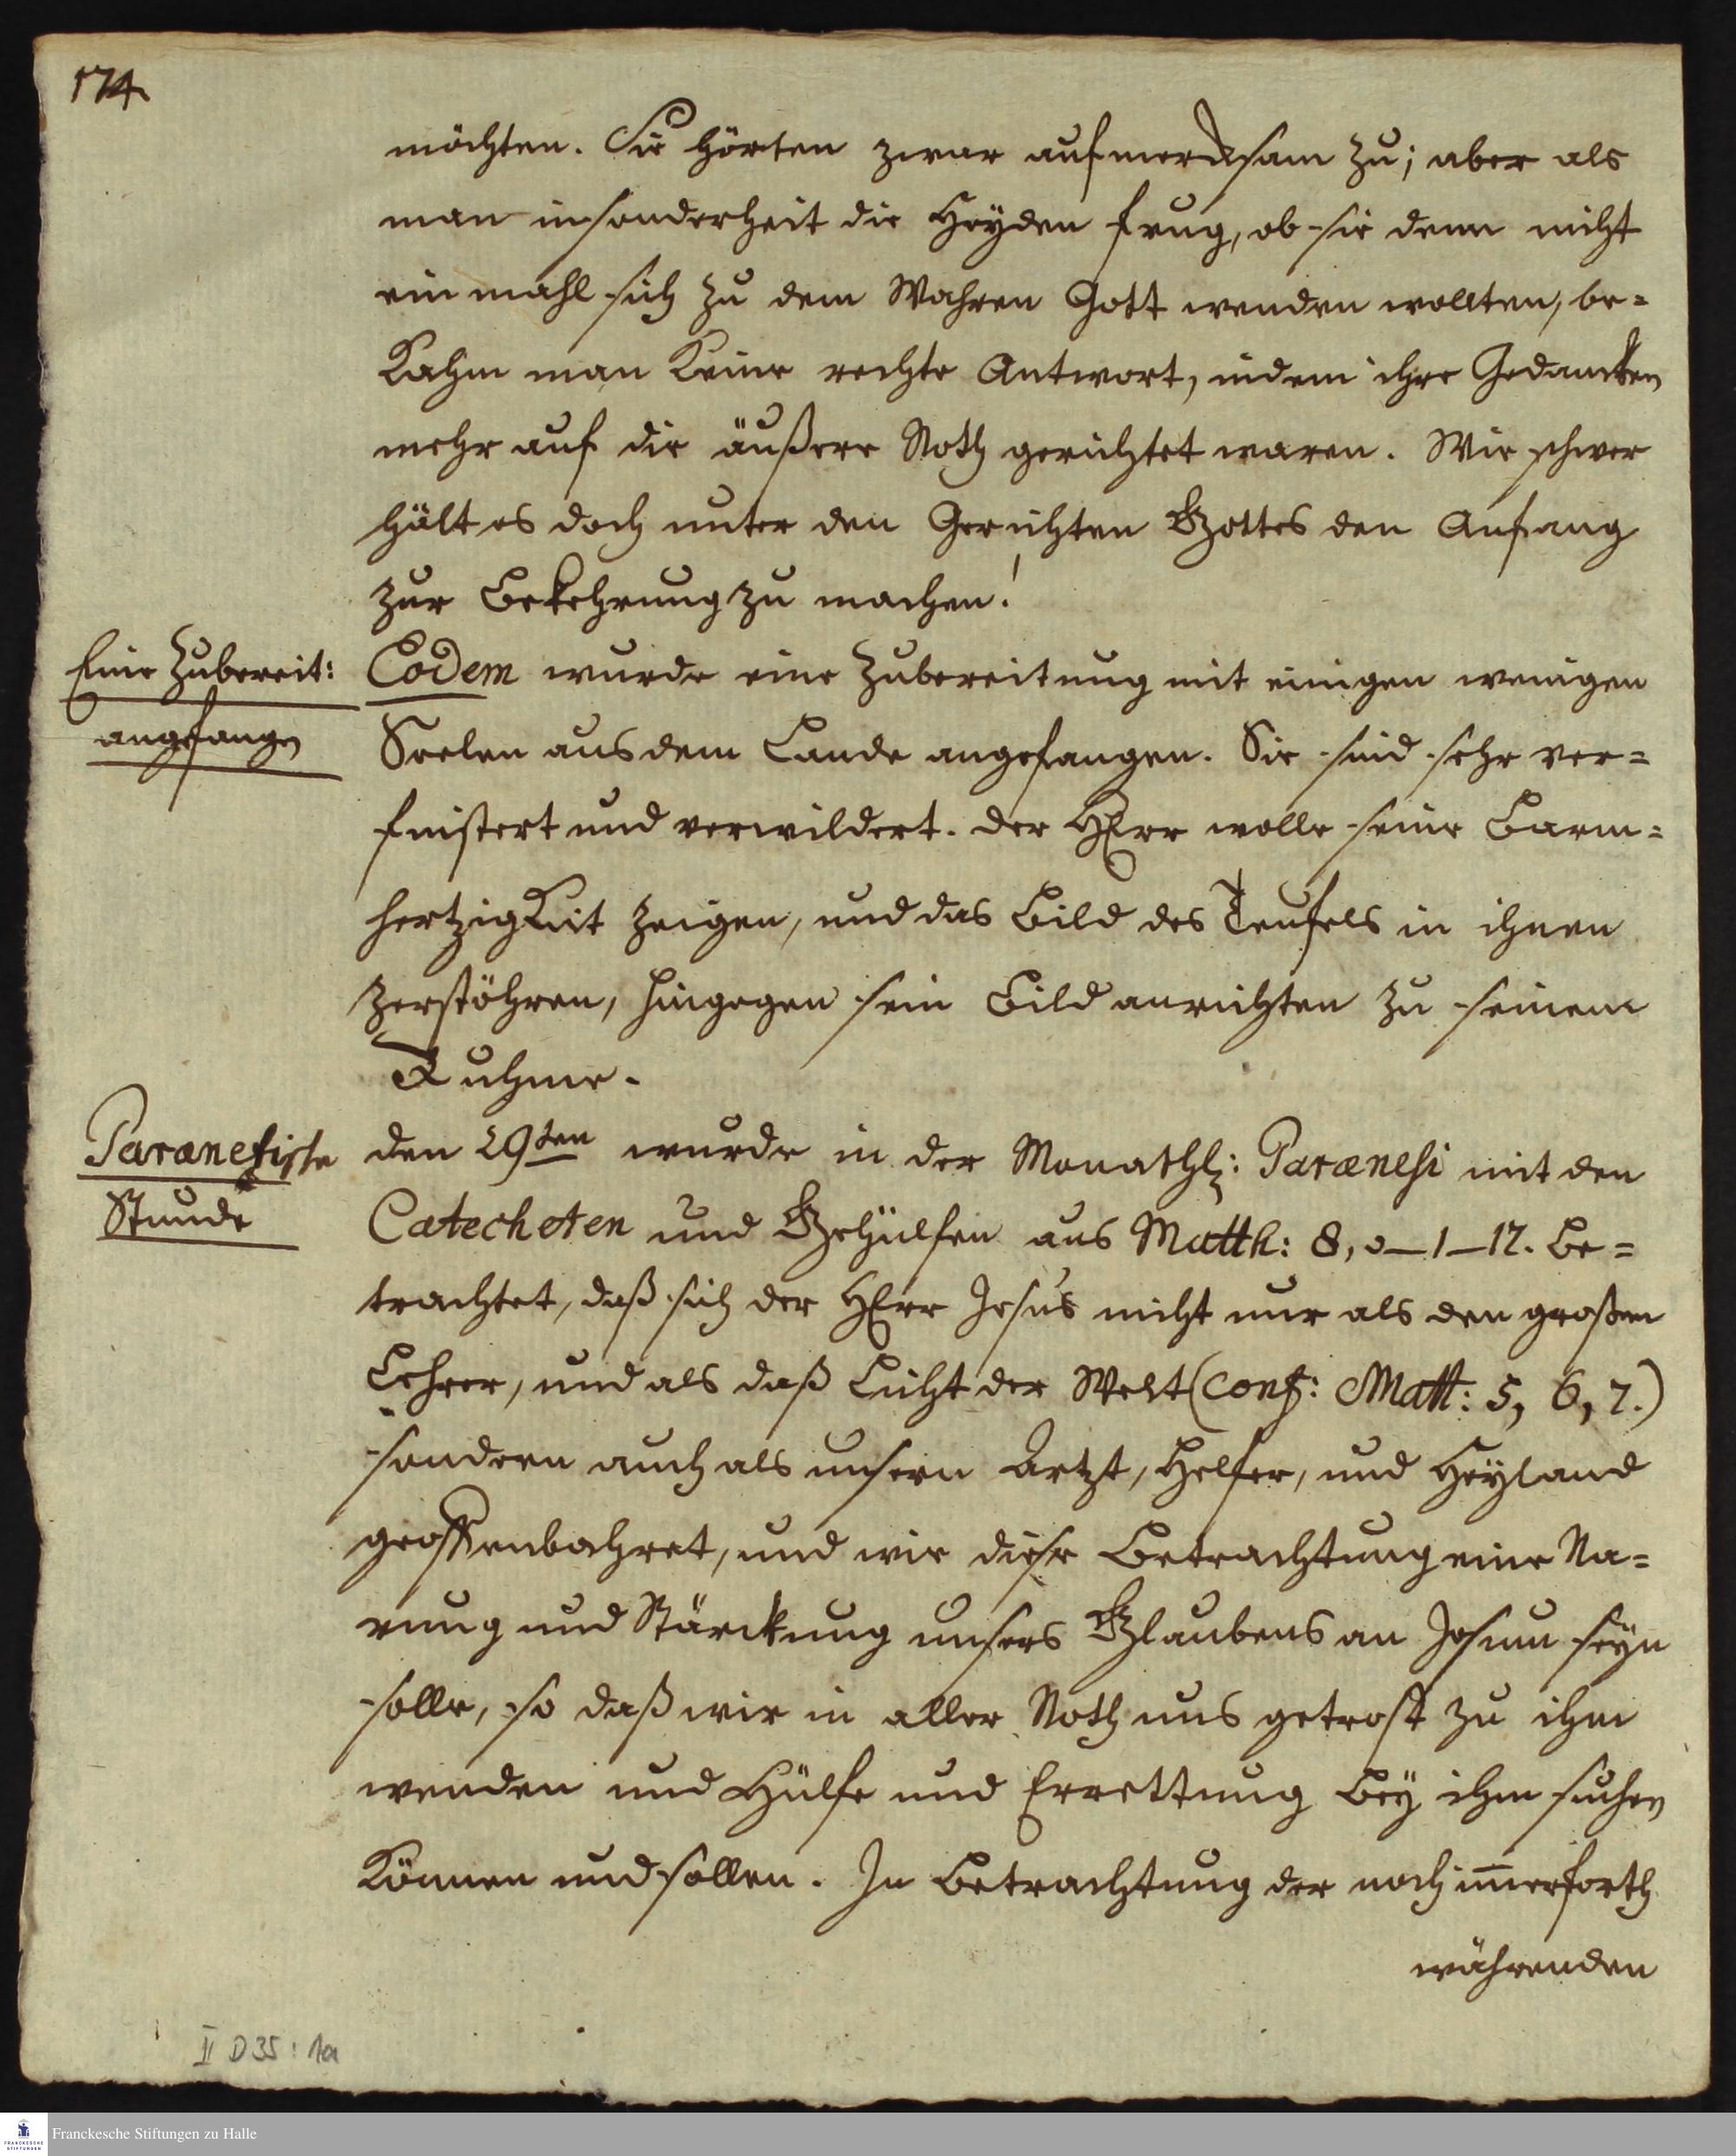 174.
möchten. Sie hörten zwar aufmercksam zu; aber als
man insonderheit die Heyden frug, ob sie denn nicht
einmahl sich zu dem Wahren Gott wenden wollten, be=
kahm man keine rechte Antwort, indem ihre Gedancken
mehr auf die äußere Noth gerichtet waren. Wie schwer
hält es doch unter den Gerichten Gottes den Anfang
zur Bekehrung zu machen!
Eine Zubereit:
angefangen
Eodem wurde eine Zubereitung mit einigen wenigen
Seelen aus dem Lande angefangen. Sie sind sehr ver=
finstert und verwildert. der HErr wolle seine Barm=
hertzigkeit zeigen, und das Bild des Teufels in ihnen
zerstöhren, hingegen sein Bild anrichten zu seinem
Ruhme.
Paranetische
Stunde
den 29ten wurde in der Monathl: Parænesi mit den
Catecheten und Gehülfen aus Matth: 8, v_1_17. be=
trachtet, daß sich der HErr Jesus nicht nur als den großen
Lehrer, und als daß Licht der Welt (conf: Matt: 5, 6, 7.)
sondern auch als unsern Artzt, Helfer, und Heyland
geoffenbahret, und wie diese Betrachtung eine Na=
rung und Stärckung unsers Glaubens an Jesum seyn
solle, so daß wir in aller Noth uns getrost zu ihm
wenden und Hülfe und Errettung bey ihm suchen
können und sollen. In Betrachtung der noch im̅erforth
währenden
II D35 : 1a
Franckesche Stiftungen zu Halle
FRANCKESCHE
STIFTUNGEN